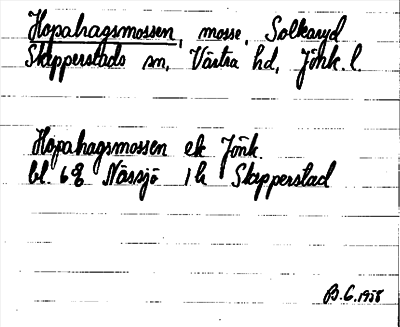 Hopahagsmossen, mosse, Solkaryd
Skepperstads sn, Västra hd, Jönk. l.
Hopahagsmossen ek Jönk.
bl. 6g Nässjö 1h Skepperstad
B.G. 1958